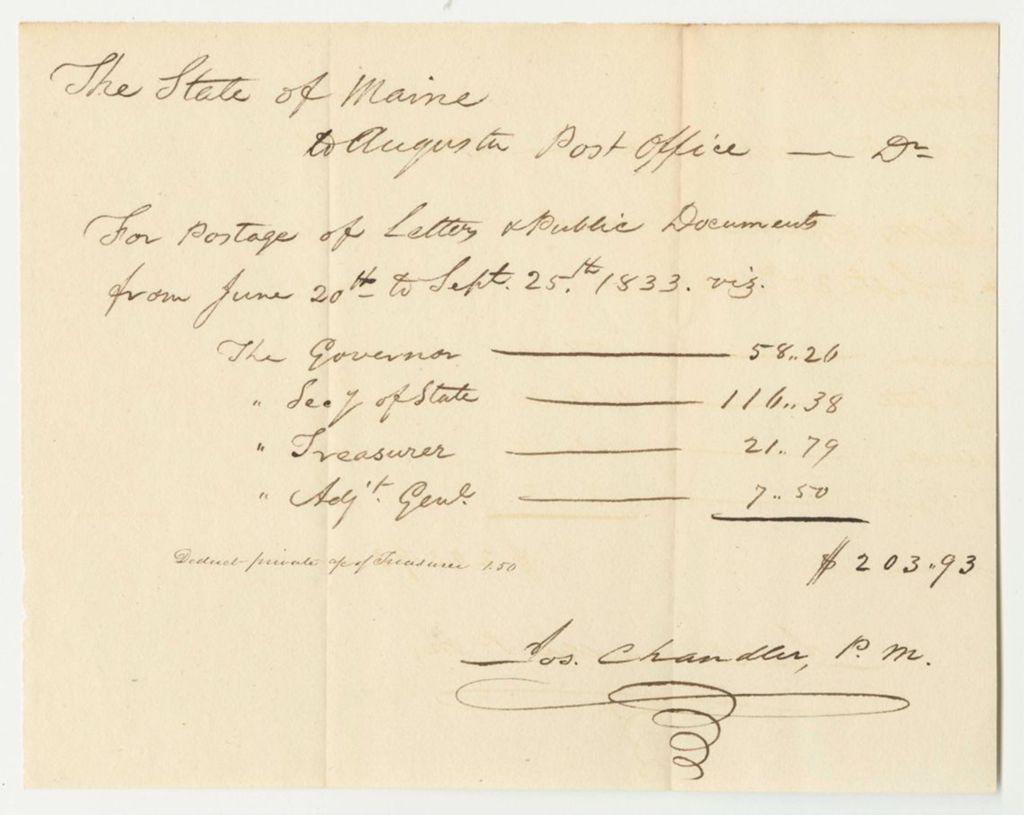 The State of Maine
to Augusta Post Office — Dr
For Postage of Letters & Public Documents
from June 20th to Sept. 25th. 1833. viz.
The Governor — 58..26
" Secy of State — 116..38
" Treasurer — 21..79
" Adjt. Genl. — 7..50
$ 203..93
Deduct private a/c of Treasurer 1.50
Jos. Chandler, P. M.